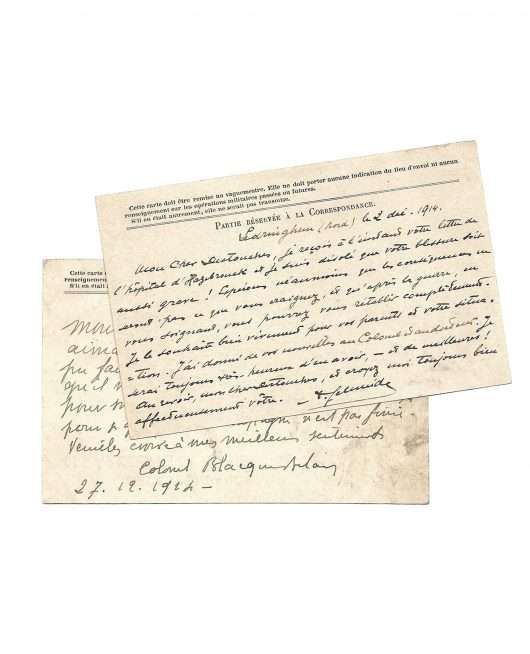 Cette carte doit être remise au vaguemestre. Elle ne doit porter aucune indication du lieu d'envoi ni aucun
renseignement sur les opérations militaires passées ou futures.
S'il en était autrement, elle ne serait pas transmise.
PARTIE RÉSERVÉE À LA CORRESPONDANCE.
(Nord) le 2 déc. 1914.
Mon cher Destouches, je reçois à l'instant votre lettre de
l'hôpital d'Hazebrouck et je suis désolé que votre blessure soit
aussi grave ! Espérons néanmoins que les conséquences ne
seront pas ce que vous craignez, et qu'après la guerre, en
vous soignant, vous pourrez vous rétablir complètement.
Je le souhaite bien vivement pour vos parents et votre situa-
tion. J'ai donné de vos nouvelles au Colonel. Je
serai toujours très heureux d'en avoir, – et de meilleures !
Au revoir, mon cher Destouches, et croyez moi toujours bien
affectueusement vôtre.
Cette carte
renseignement
S'il en était
aima
pu fai
qu'il
pour
pour n'est pas finie.
Veuillez croire à mes meilleurs sentiments
Colonel
27.12.1914 –